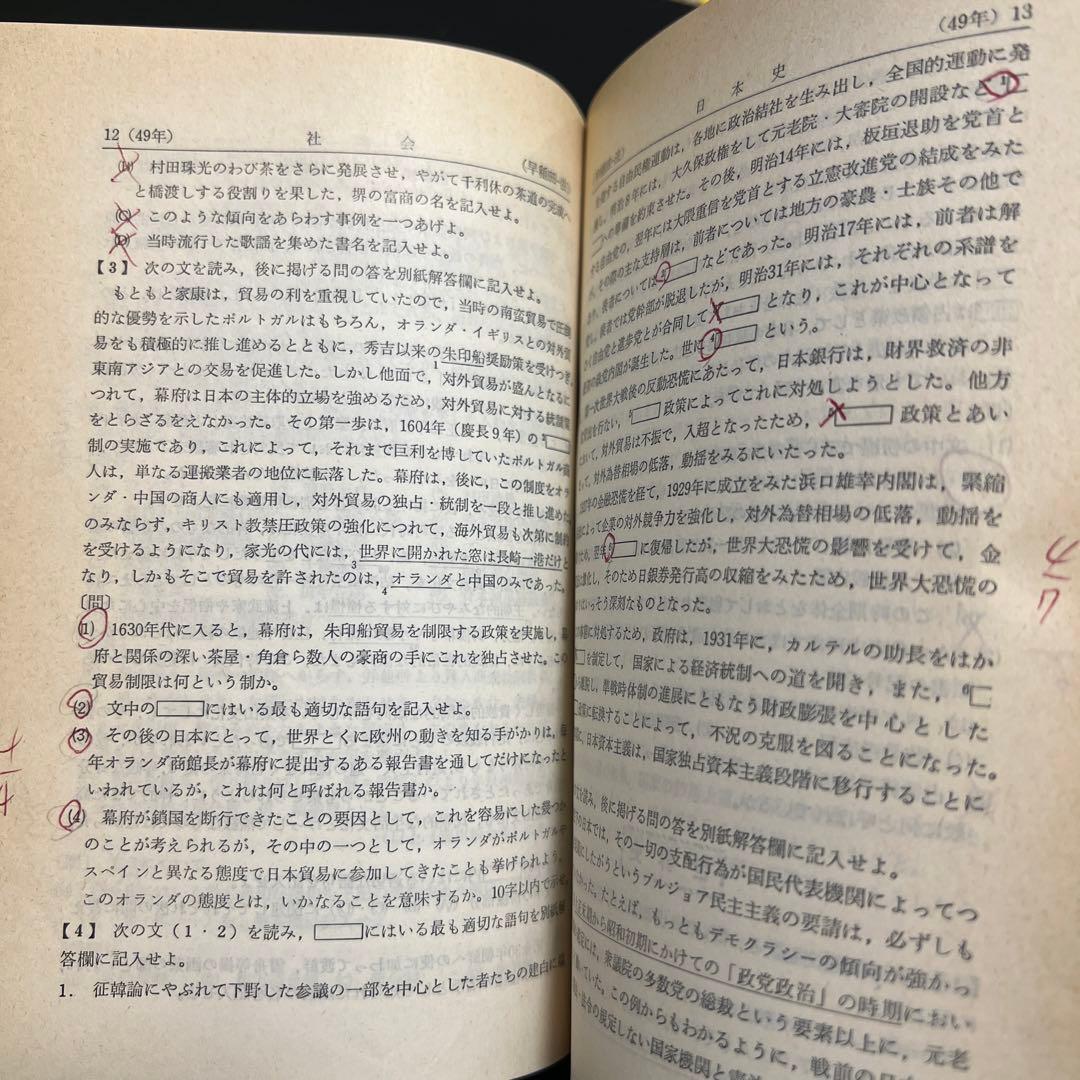 12 (49年)　社　会　(早稲田・
(B) 村田珠光のわび茶をさらに発展させ，やがて千利休の茶道の完成へ
と橋渡しする役割りを果した，堺の富商の名を記入せよ。
(C) このような傾向をあらわす事例を一つあげよ。
(D) 当時流行した歌謡を集めた書名を記入せよ。
【3】 次の文を読み，後に掲げる問の答を別紙解答欄に記入せよ。
もともと家康は，貿易の利を重視していたので，当時の南蛮貿易で圧倒
的な優勢を示したポルトガルはもちろん，オランダ・イギリスとの対外貿
易をも積極的に推し進めるとともに，秀吉以来の朱印船奨励策を受けつぎ，
1
東南アジアとの交易を促進した。しかし他面で，対外貿易が盛んとなるに
つれて，幕府は日本の主体的立場を強めるため，対外貿易に対する統制策
をとらざるをえなかった。その第一歩は，1604年（慶長9年）の2□
制の実施であり，これによって，それまで巨利を博していたポルトガル商
人は，単なる運搬業者の地位に転落した。幕府は，後に，この制度をオラ
ンダ・中国の商人にも適用し，対外貿易の独占・統制を一段と推し進めた
のみならず，キリスト教禁圧政策の強化につれて，海外貿易も次第に制約
を受けるようになり，家光の代には，世界に開かれた窓は長崎一港だけと
3
なり，しかもそこで貿易を許されたのは，オランダと中国のみであった。
4
〔問〕
(1) 1630年代に入ると，幕府は，朱印船貿易を制限する政策を実施し，幕
府と関係の深い茶屋・角倉ら数人の豪商の手にこれを独占させた。この
貿易制限は何という制か。
(2) 文中の□にはいる最も適切な語句を記入せよ。
(3) その後の日本にとって，世界とくに欧州の動きを知る手がかりは，毎
年オランダ商館長が幕府に提出するある報告書を通してだけになったと
いわれているが，これは何と呼ばれる報告書か。
(4) 幕府が鎖国を断行できたことの要因として，これを容易にした幾つか
のことが考えられるが，その中の一つとして，オランダがポルトガルや
スペインと異なる態度で日本貿易に参加してきたことも挙げられよう。
このオランダの態度とは，いかなることを意味するか。10字以内で示せ。
【4】 次の文（1・2）を読み，□にはいる最も適切な語句を別紙解
答欄に記入せよ。
1. 征韓論にやぶれて下野した参議の一部を中心とした者たちの建白に
4
(49年) 13
日　本　史
する自由民権運動は，各地に政治結社を生み出し，全国的運動に発
展し，明治8年には，大久保政権をして元老院・大審院の開設など1□
□への準備を約束させた。その後，明治14年には，板垣退助を党首と
する自由党の，翌年には大隈重信を党首とする立憲改進党の結成をみた
が，その際の主な支持層は，前者については地方の豪農・士族その他で
，後者については2□などであった。明治17年には，前者は解
，後者では党幹部が脱退したが，明治31年には，それぞれの系譜を
く自由党と進歩党とが合同して3□となり，これが中心となって
の政党内閣が誕生した。世に4□という。
第一次世界大戦後の反動恐慌にあたって，日本銀行は，財界救済の非
を行ない，□政策によってこれに対処しようとした。他方
おいて，対外貿易は不振で，入超となったため，□政策とあい
って，対外為替相場の低落，動揺をみるにいたった。
1927年の金融恐慌を経て，1929年に成立をみた浜口雄幸内閣は，緊縮
によって企業の対外競争力を強化し，対外為替相場の低落，動揺を
ため，翌年□に復帰したが，世界大恐慌の影響を受けて，金
激化し，そのため日銀券発行高の収縮をみたため，世界大恐慌の
はいっそう深刻なものとなった。
事態に対処するため，政府は，1931年に，カルテルの助長をはか
□を制定して，国家による経済統制への道を開き，また，6□
離脱し，準戦時体制の進展にともなう財政膨張を中心とした
政策に転換することによって，不況の克服を図ることになった。
に，日本資本主義は，国家独占資本主義段階に移行することに
4
7
文を読み，後に掲げる問の答を別紙解答欄に記入せよ。
の日本では，その一切の支配行為が国民代表機関によってつ
志にしたがうというブルジョア民主主義の要請は，必ずしも
なかった。たとえば，もっともデモクラシーの傾向が強かっ
大正末期から昭和初期にかけての「政党政治」の時期におい
には，衆議院の多数党の総裁という要素以上に，元老
いていた。この例からもわかるように，戦前の日本
・法令の規定しない国家機関と